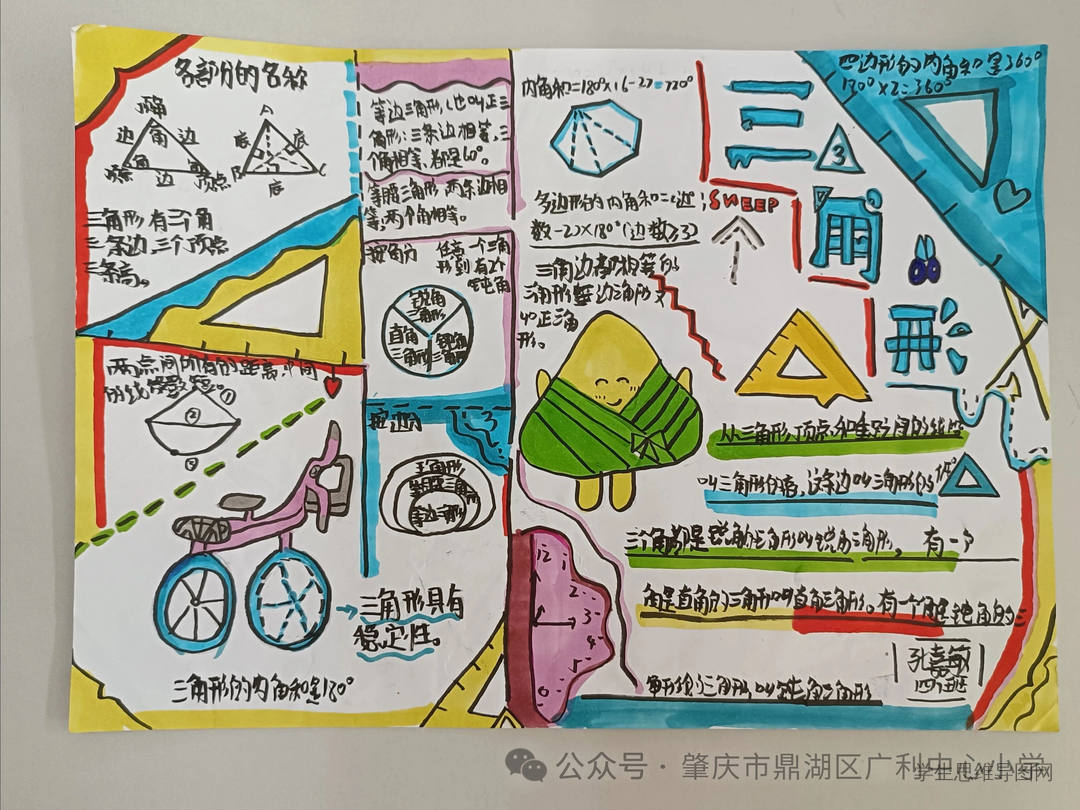 各部分的名称
顶角
边 角 边
顶点 边 顶点
A
底 底
B C
底
三角形有三个角
三条边,三个顶点
三条高。
等边三角形,也叫正三
角形:三条边相等,三
个角相等,都是60°。
等腰三角形,两条边相
等,两个角相等。
按角分
一个三角
形 到 有2个
钝角
锐角
三角形
直角
三角形
钝角
三角形
两点间所有的 距离,中间
的线段最短。
①
②
③
按边分
3
三角形
等腰三角形
等边三角形
三角形具有
稳定性。
三角形的内角和是180°
内角和=180°×
多边形的内角和=(边
数-2)×180°(边数≥3)
三角边都相等的
三角形是等边三角形又
叫正三角
形。
四边形的内角和是360°
180°×2=360°
三
3
角
形
SHEEP
从三角形顶点和 间的线段
叫三角形的高,这条边叫三角形的
三个角都是锐角的三角形叫锐角三角形, 有一个
角是直角的三角形叫直角三角形。有一个角是钝角的三
角形 三角形叫钝角三角形
12
1
2
3
4
5
6
孔嘉敏
四 班
公众号 · 肇庆市鼎湖区广利中心小学
学生思维导图网